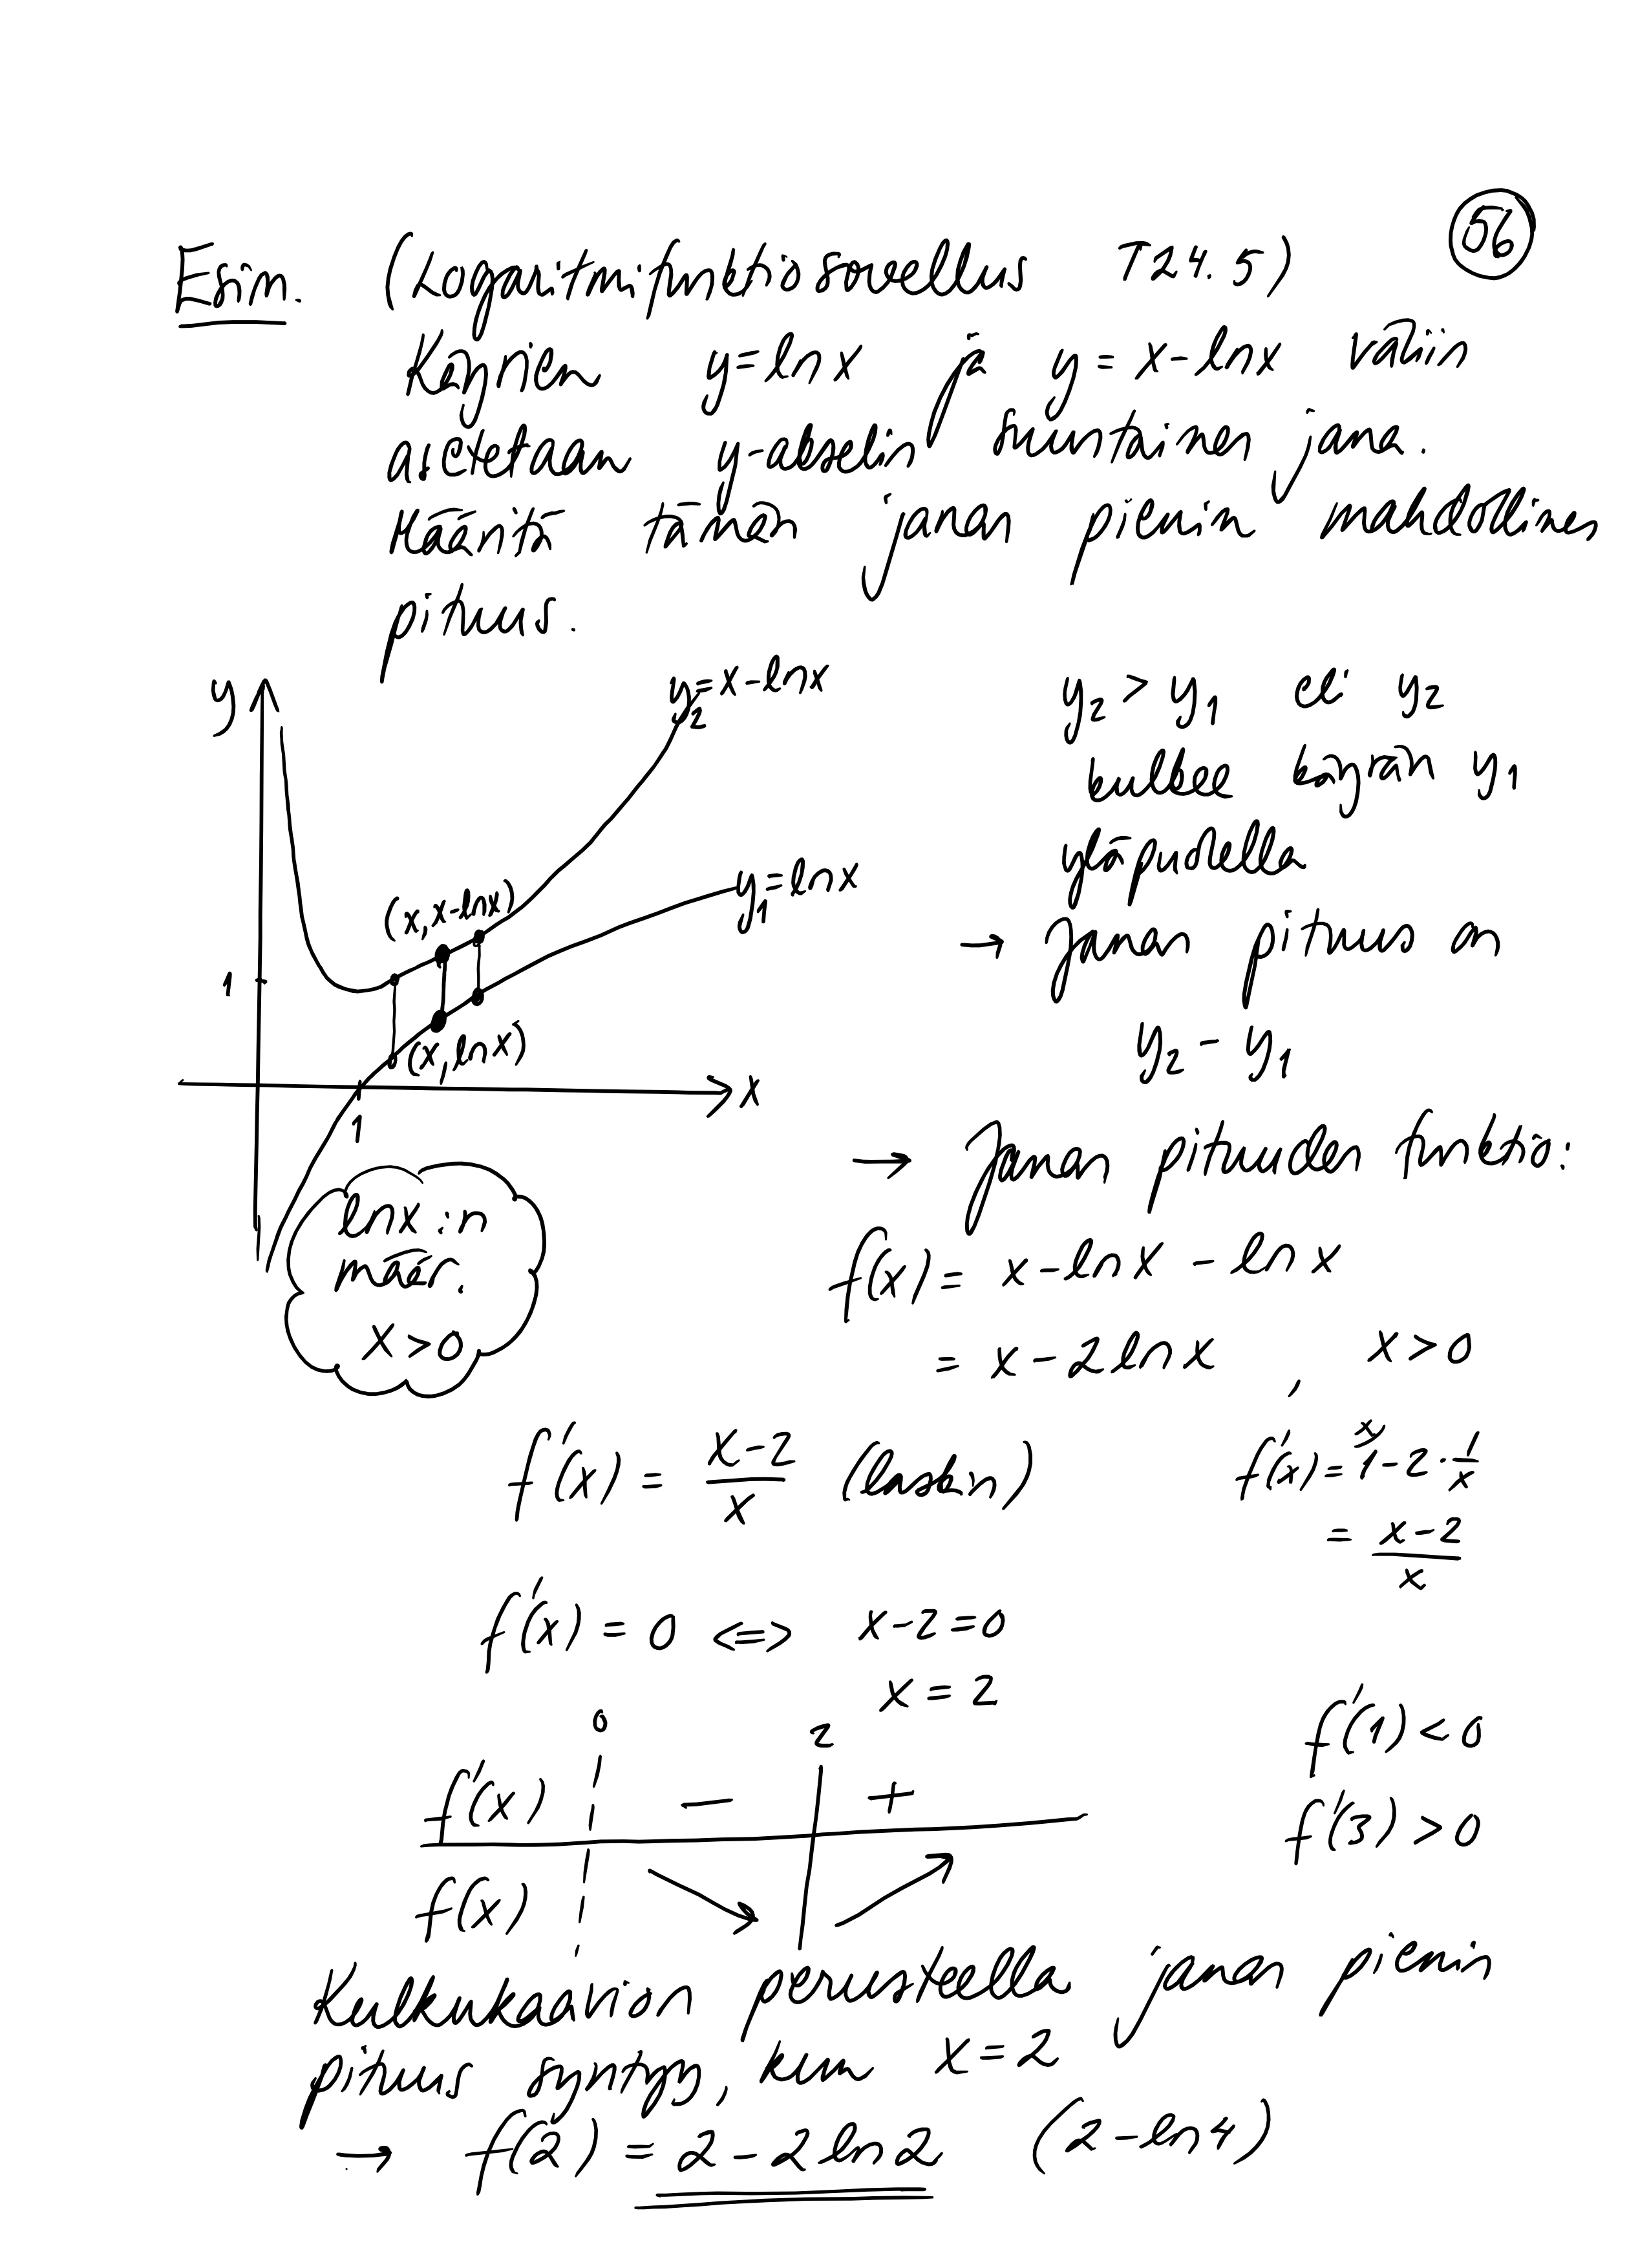 56
Esim. (Logaritmifunktio sovellus T24.5)
Käyrien y=ln x ja y = x-lnx väliin
asetetaan y-akselin suuntainen jana.
Määritä tämän janan pienin mahdollinen
pituus.
y
y₂=x-lnx
y₁=lnx
(x, x-lnx)
(x, lnx)
1
1
x
lnx:n
määr.
x>0
y₂ > y₁ eli y₂
kulkee käyrän y₁
yläpuolella
→ Janan pituus on
y₂ - y₁
→ Janan pituuden funktio:
f(x) = x-ln x - ln x
= x - 2 ln x , x>0
f'(x) = (x-2)/x (laskin)
f'(x) = ˣ⁾1-2·1/x
= (x-2)/x
f'(x) = 0 <=> x-2=0
x = 2
0 2
f'(x) - +
f(x) ↘ ↗
f'(1) < 0
f'(3) > 0
Kulkukaavion perusteella janan pienin
pituus syntyy, kun x=2
→ f(2) = 2-2 ln 2 (2-ln 4)